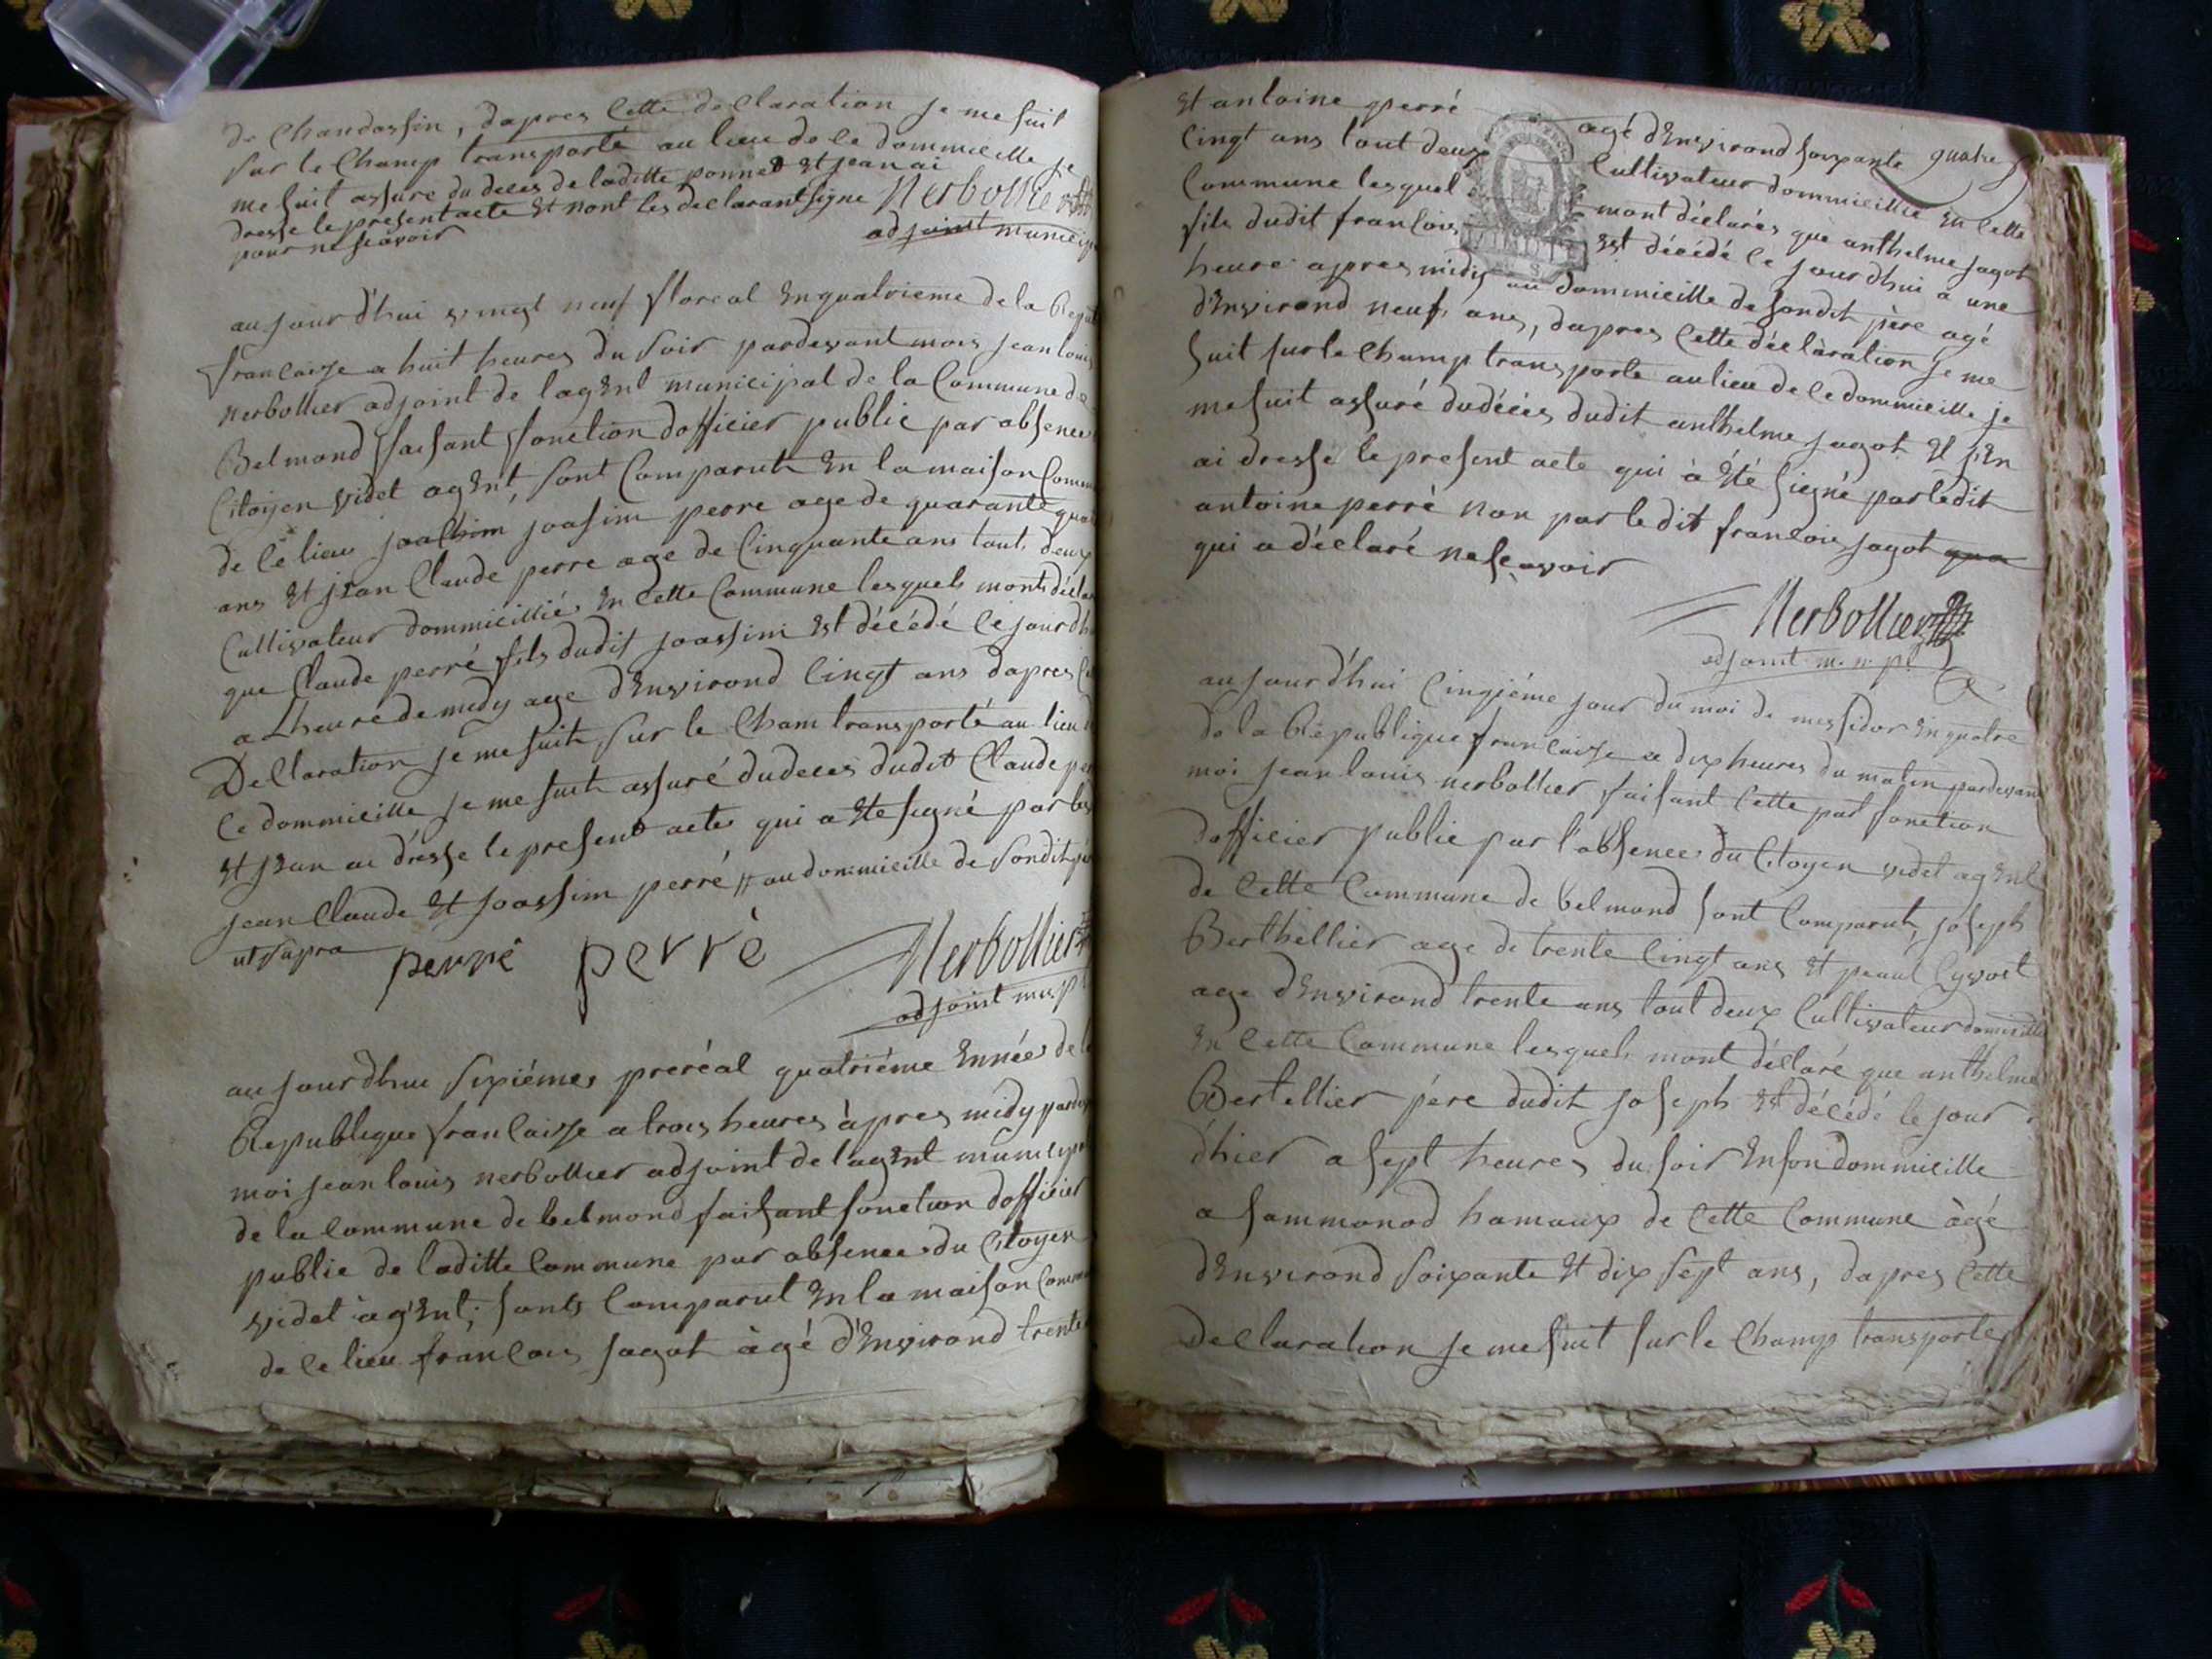 de Chandossin, dapres Cette declaration je me suit
sur le Champ transporté au lieu de ce dommicille je
me suit assure du deces de laditte ponnet et jean ai
dresse le present acte et nont les declarant signe Nerbollier
pour ne scavoir
adjoint municip
aujourd'hui vingt neuf floreal en quatrieme de la Repu
francaise a huit heures du soir pardevant mois jean louis
nerbollier adjoint de lagent municipal de la Commune de
Belmond faisant fonction dofficier public par absence
Citoyen videt agent, sont Comparut en la maison Commu
de Ce lieu joachim joasim perre age de quarante qua
ans et jean Claude perre age de Cinquante ans tout deux
Cultivateur dommicillié en Cette Commune lesquels mont décla
que Claude perré fils dudit joassim est décédé Cejourdh
a Lheure de midy age d'Environd Cinqt ans dapres Ce
Declaration je me suit sur le Cham transporté au lieu d
Ce dommicille je me suit assuré dudeces dudit Claude per
et jean ai dresse le present acte qui a ete signé par les
jean Claude et joassim perré // au dommicille de sondit pé
ut supra perré perrè Nerbollier
adjoint mup
aujourdhui sixiéme preréal quatriéme Ennée de la
Republique francaise a trois heures àpres midy parde
moi jean louis nerbollier adjoint de lagent municipa
de la Commune de belmond faisant fonction dofficier
public de laditte Commune par absence du Citoyen
videt agent; sont Comparut en la maison Commu
de Ce lieu francois jagot àgé d'Environd trente
et antoine perré agé d'Environd soixante quatre
Cinqt ans tout deux Cultivateur dommicillié en Cette
Commune lesquel mont déclarés que anthelme jagot
fils dudit francois est décédé Ce jourdhui a une
heure apres midy au dommicille de sondit père agé
d'Environd neuf ans, dapres Cette déclàration je me
suit sur le Champ transporte au lieu de Ce dommicille je
me suit assuré dudécés dudit anthelme jagot et j'en
ai dressé le present acte qui à été signé par ledit
antoine perrè non par ledit francois jagot qua
qui a déclaré ne scavoir
Nerbollier
adjoint m. n. pl
aujourd'hui Cinqiéme jour du moi de messidor en quatre
de la République francaise a dix heures du matin pardevant
moi jean louis nerbollier faisant Cette par fonction
dofficier public par l'absence du Citoyen videt agent
de Cette Commune de belmond sont Comparut, joseph
Berthellier age de trente Cinqt ans et
age d'Environd trente ans tout deux Cultivateur domicillie
en Cette Commune lesquels mont déclaré que anthelme
Bertellier pére dudit joseph est décédé le jour
d'hier a sept heures du soir en son dommicille
a sammonod hamaux de Cette Commune àgé
d'Environd soixante et dix sept ans, dapres Cette
Declaration je me suit sur le Champ transporte